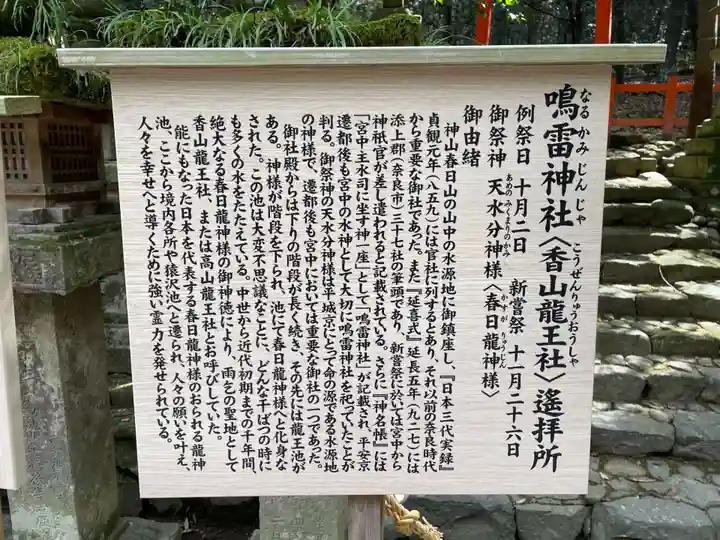 鳴雷神社〈香山龍王社〉遙拝所
なるかみじんじゃ
こうぜんりゅうおうしゃ
例祭日 十月二日 新嘗祭 十一月二十六日
御祭神 天水分神様〈春日龍神様〉
あめのみくまりのかみ
かすがりゅうじん
御由緒
神山春日山の山中の水源地に御鎮座し、『日本三代実録』
貞観元年（八五九）には官社に列するとあり、それ以前の奈良時代
から重要な御社であった。また『延喜式』延長五年（九二七）には
添上郡（奈良市）三十七社の筆頭であり、新嘗祭に於いては宮中から
神祇官が差し遣われると記載されている。さらに『神名帳』には
「宮中主水司に坐す神一座」として「鳴雷神社」が記載され、平安京
遷都後も宮中の水神として大切に鳴雷神社を祀っていたことが
判る。御祭神の天水分神様は平城京にとって命の源である水源地
の神様で、遷都後も宮中においては重要な御社の一つであった。
御社殿からは下りの階段が長く続き、その先には龍王池が
ある。神様が階段を下られ、池にて春日龍神様へと化身な
された。この池は大変不思議なことに、どんな干ばつの時に
も多くの水をたたえている。中世から近代初期までの千年間、
絶大なる春日龍神様の御神徳により、雨乞の聖地として
香山龍王社、または高山龍王社とお呼びしていた。
能にもなった日本を代表する春日龍神様のおられる龍神
池、ここから境内各所や猿沢池へと遷られ、人々の願いを叶え、
人々を幸せへと導くために強い霊力を発せられている。